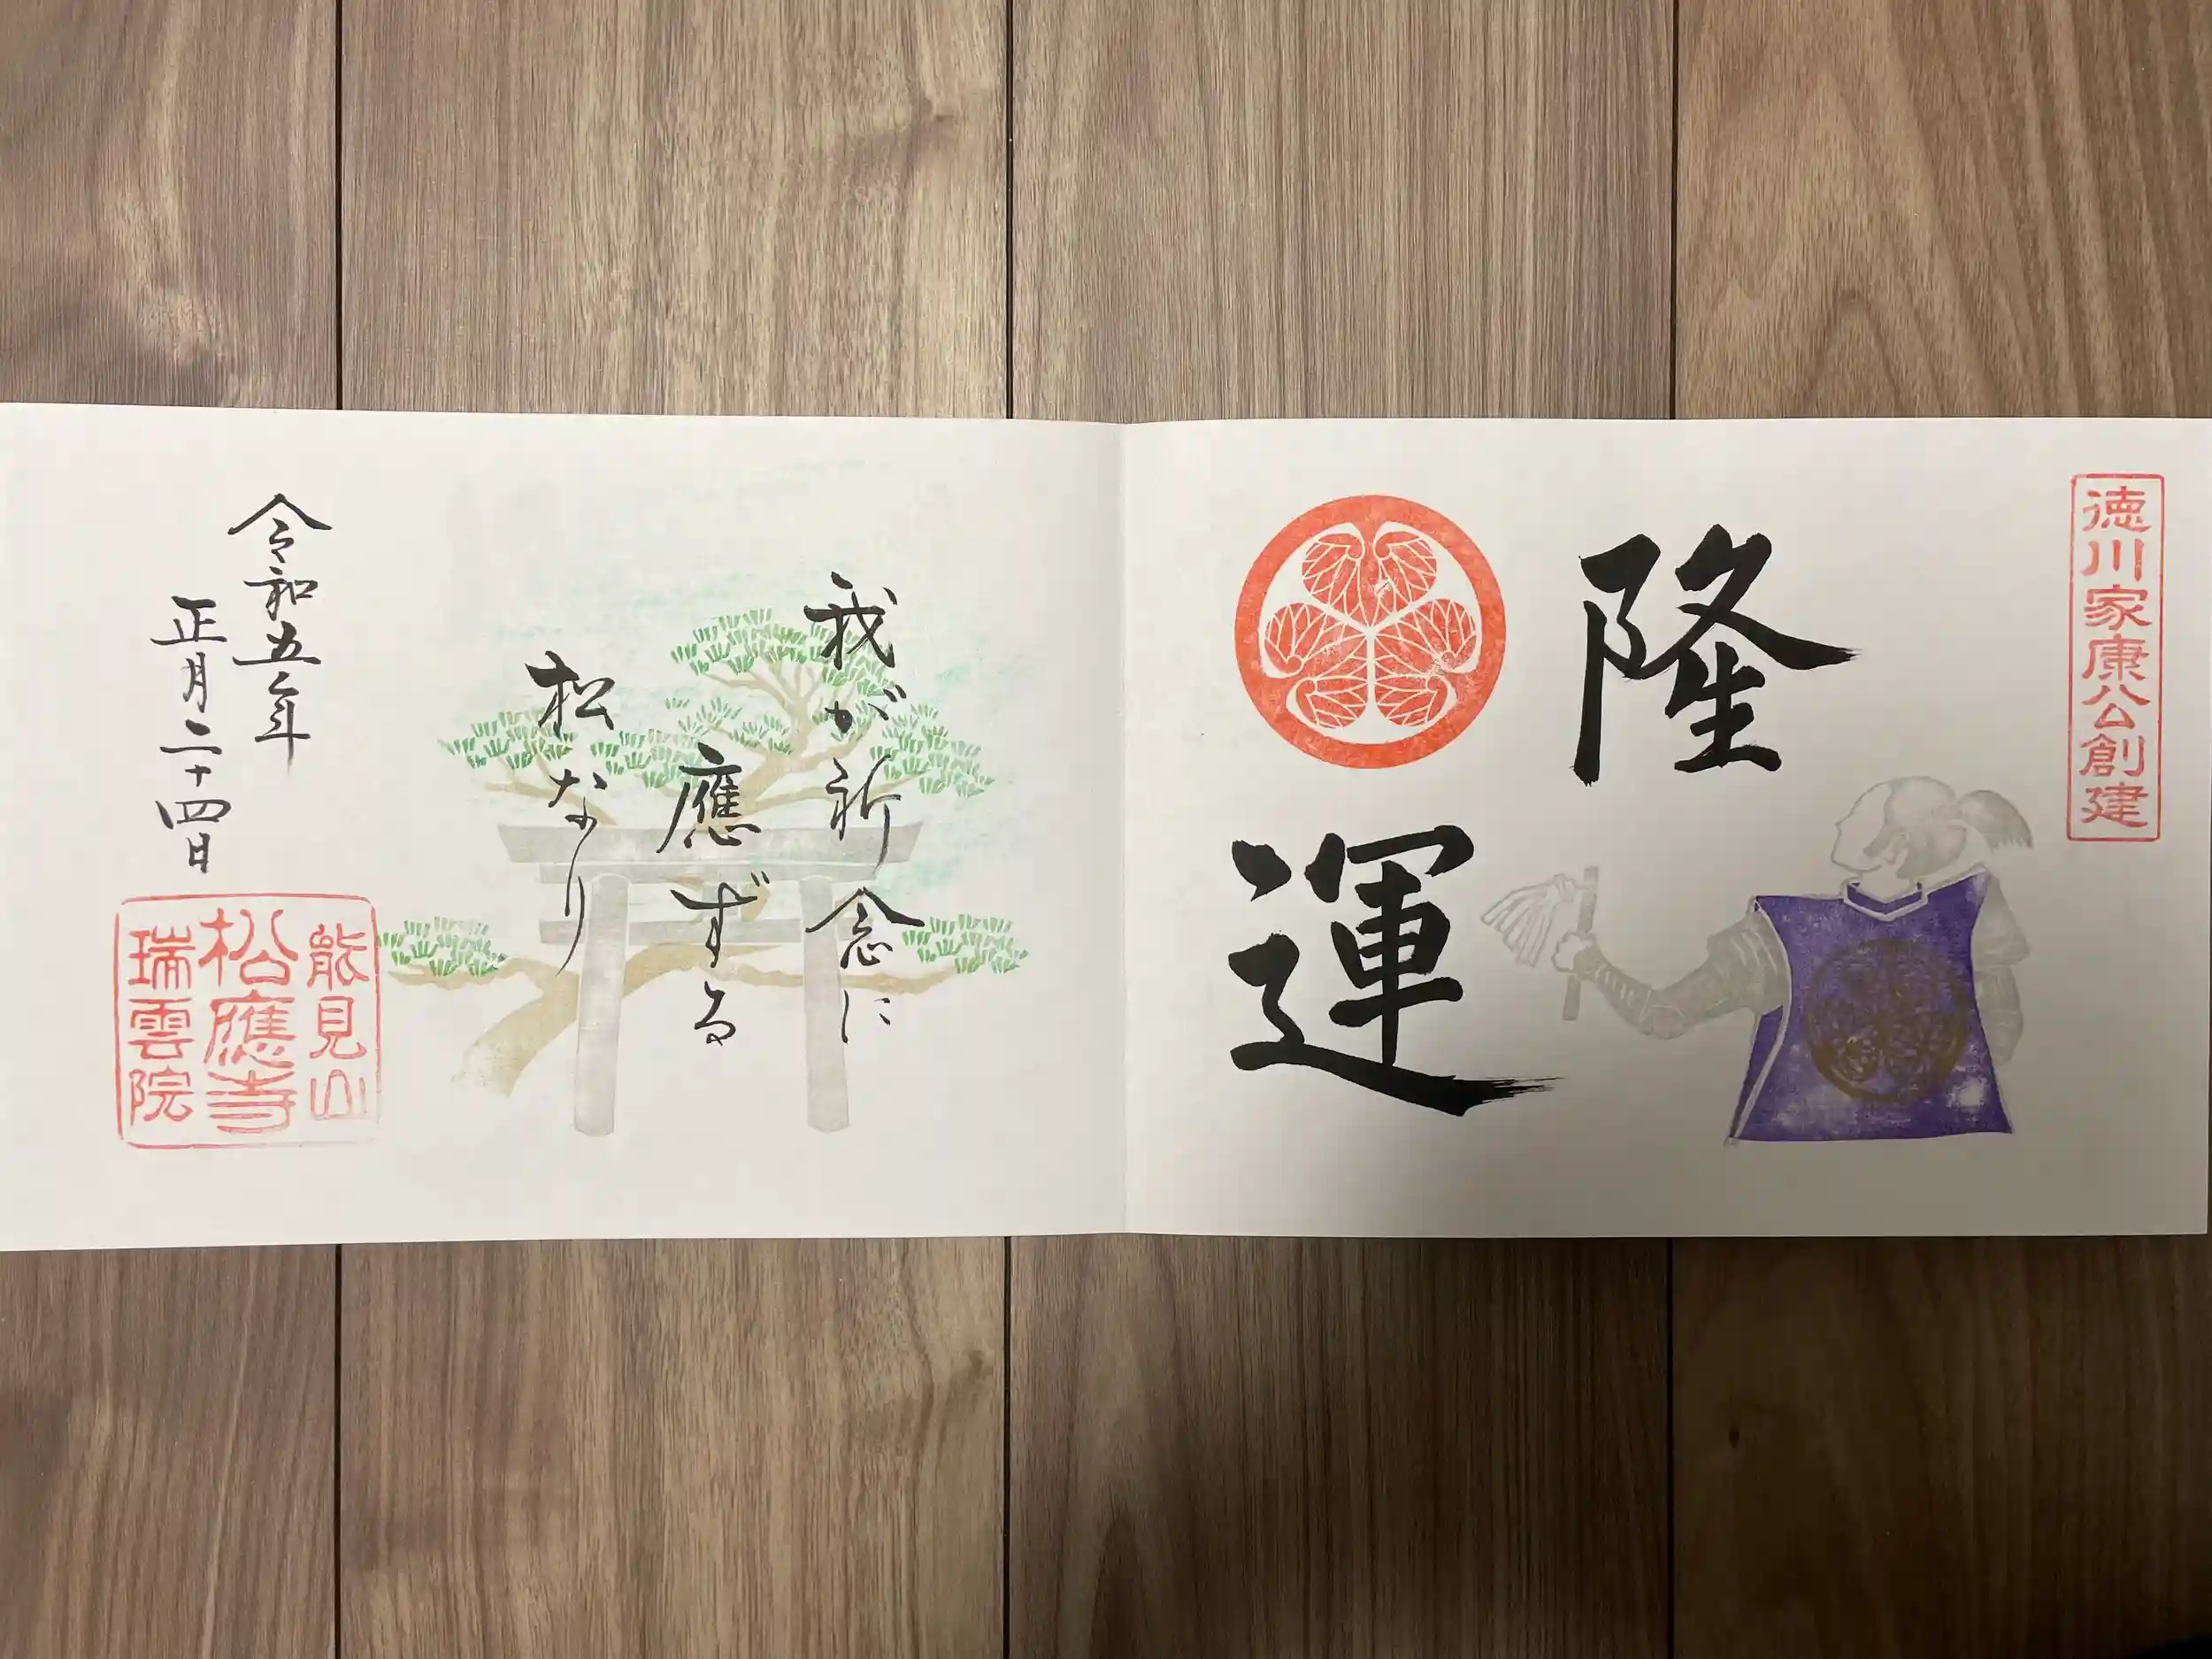 徳川家康公創建
隆
運
我が祈念に
應ずる
松なり
令和五年
正月二十四日
能見山
松應寺
瑞雲院